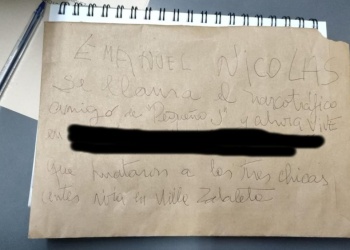 EMANUEL NICOLAS
Se el llama el narcotráfico
amigo de "Pequeño J" y ahora VIVE
en
que mataron a las tres chicas
antes vivia en Villa Zabaleta